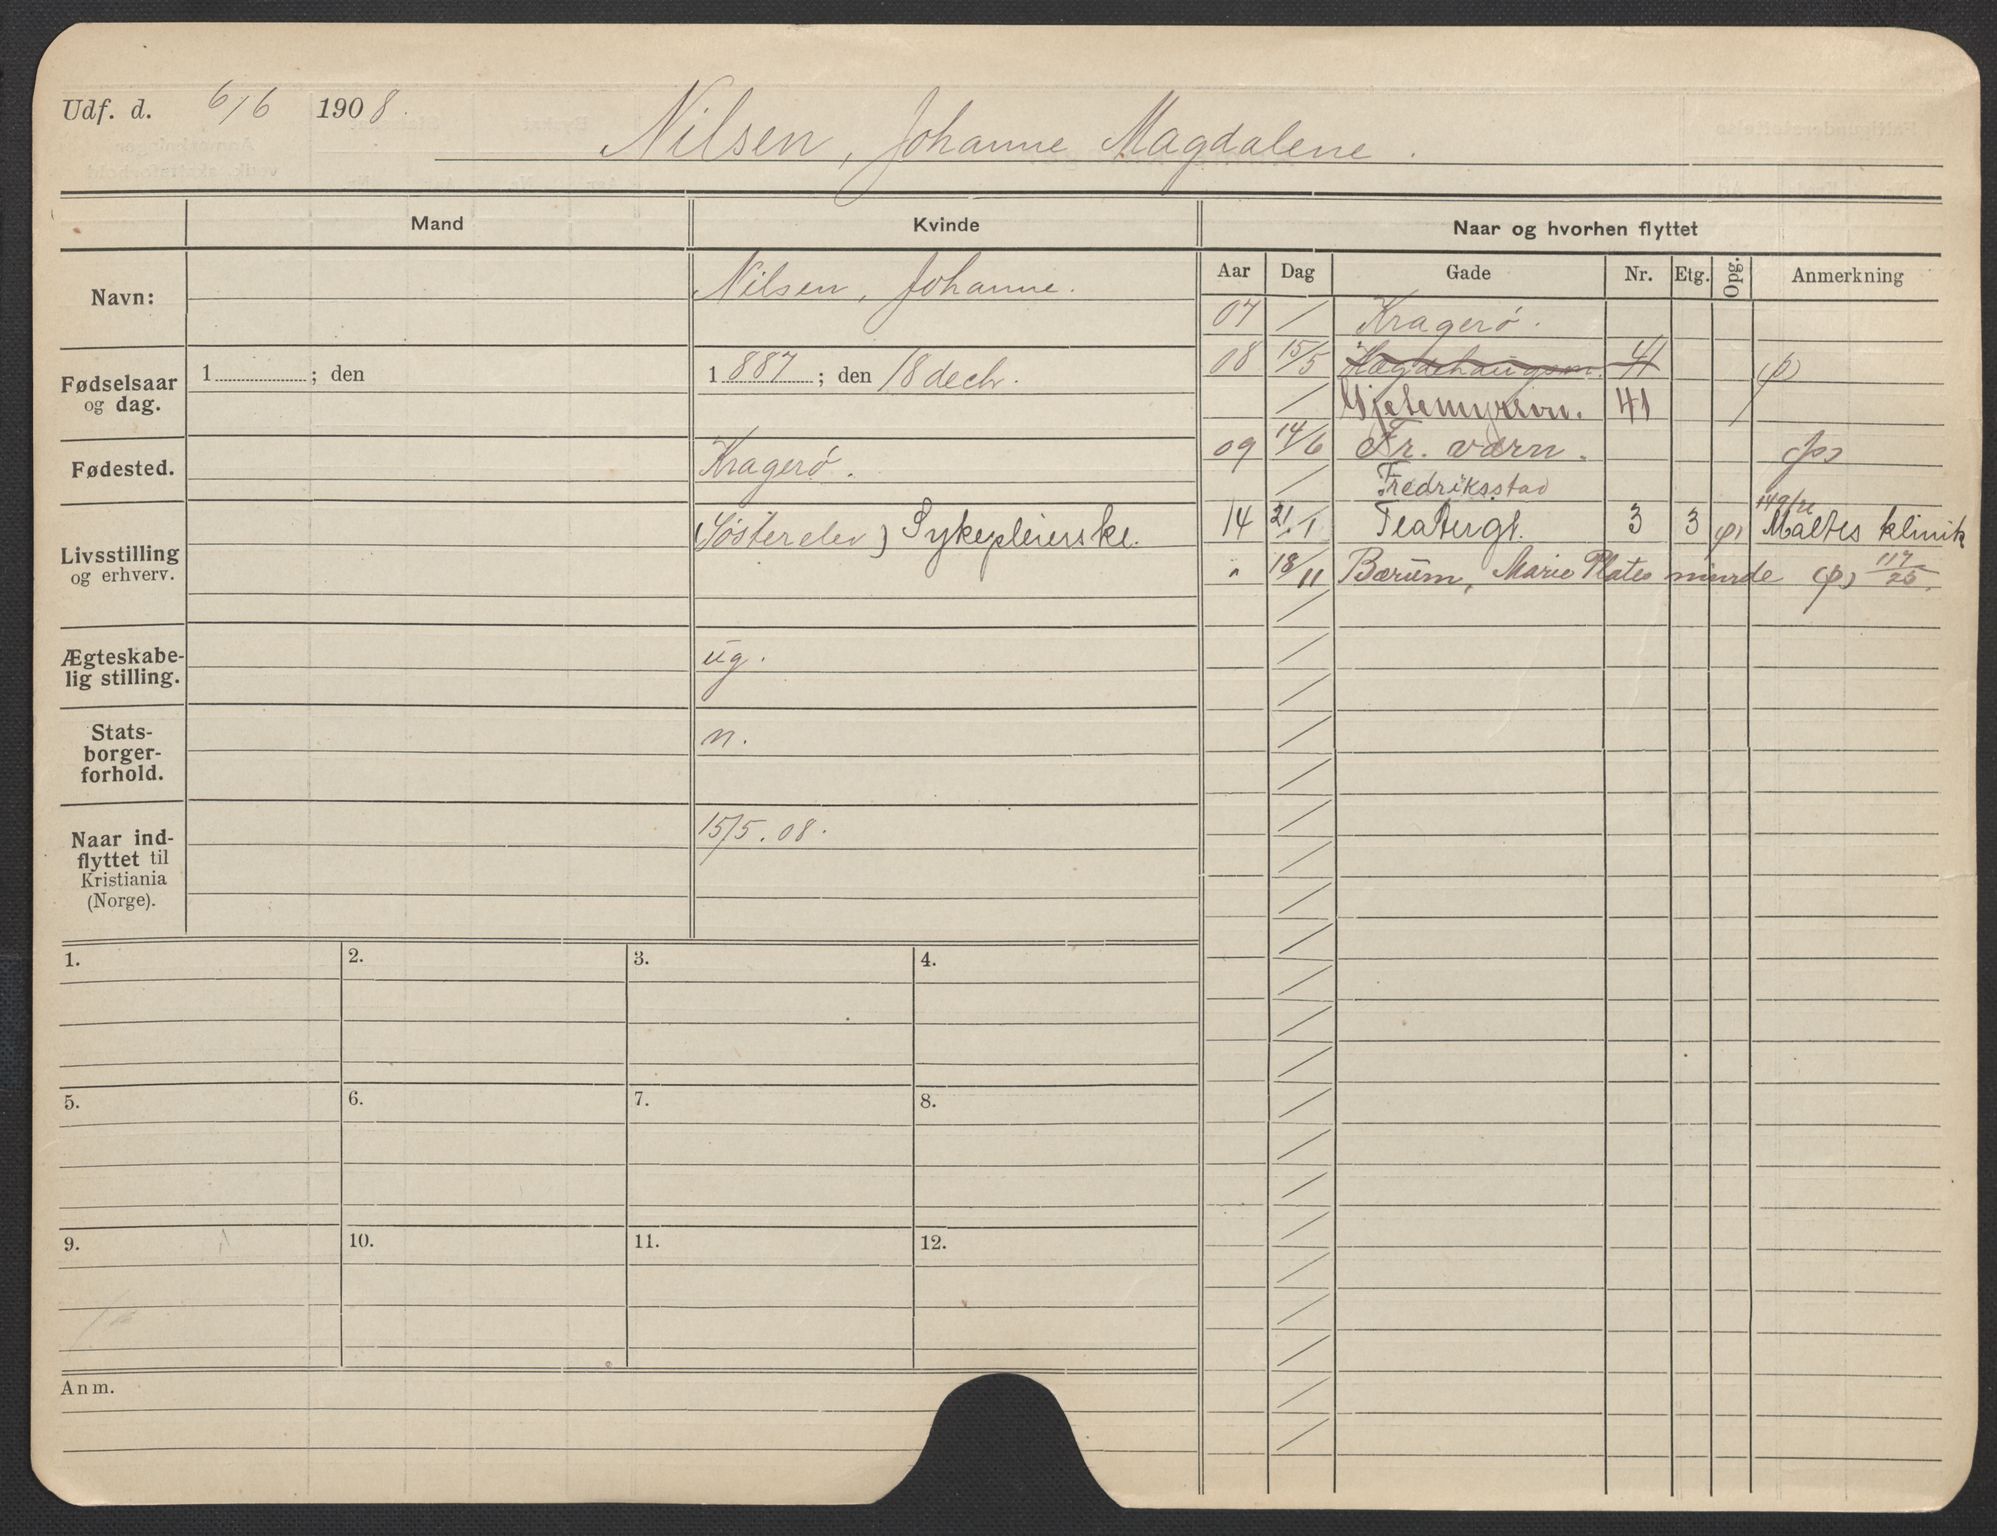 Udf. d. 6/6 1908.
Nilsen, Johanne Magdalene.
Mand Kvinde Naar og hvorhen flyttet
Aar Dag Gade Nr. Etg. Opg. Anmerkning
Navn: Nilsen, Johanne.
Fødselsaar og dag. 1 ; den 1887 ; den 18 decbr.
Fødested. Kragerø.
Livsstilling og erhverv. (Søsterelev) Sykepleierske.
Ægteskabe-
lig stilling. ug.
Stats-
borger-
forhold. n.
Naar ind-
flyttet til
Kristiania
(Norge). 15/5. 08.
07 / Kragerø.
08 15/5 Hægdehaugsvn. 41 (p)
/ Gjetemyrsvn. 41 /
09 14/6 Fr. værn. (p)
/ Fredriksstad
14 21/1 Teatergt. 3 3 (p) Maltes klinik
" 18/11 Bærum, Marie Plates minde (p) 117/25.
1. 2. 3. 4.
5. 6. 7. 8.
9. 10. 11. 12.
Anm.